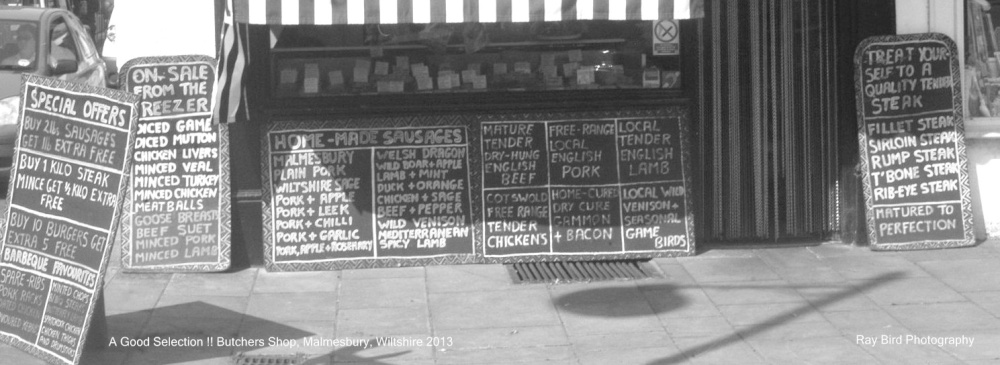 SPECIAL OFFERS
BUY 2lb SAUSAGES
GET 1lb EXTRA FREE
BUY 1 KILO STEAK
MINCE GET ½ KILO EXTRA
FREE
BUY 10 BURGERS GET
EXTRA 5 FREE
BARBEQUE FAVOURITES
SPARE-RIBS
PORK RACKS
CHICKEN
MINTED CHOPS
CHICKEN THIGHS
AND DRUMSTICKS
ON-SALE
FROM THE
FREEZER
DICED GAME
DICED MUTTON
CHICKEN LIVERS
MINCED VEAL
MINCED TURKEY
MINCED CHICKEN
MEAT BALLS
GOOSE BREAST
BEEF SUET
MINCED PORK
MINCED LAMB
HOME-MADE SAUSAGES
MALMESBURY
PLAIN PORK
WILTSHIRE SAGE
PORK + APPLE
PORK + LEEK
PORK + CHILLI
PORK + GARLIC
PORK, APPLE + ROSEMARY
WELSH DRAGON
WILD BOAR + APPLE
LAMB + MINT
DUCK + ORANGE
CHICKEN + SAGE
BEEF + PEPPER
WILD VENISON
MEDITERRANEAN
SPICY LAMB
MATURE
TENDER
DRY-HUNG
ENGLISH
BEEF
FREE-RANGE
LOCAL
ENGLISH
PORK
LOCAL
TENDER
ENGLISH
LAMB
COTSWOLD
FREE RANGE
TENDER
CHICKENS
HOME-CURED
DRY CURE
GAMMON
+ BACON
LOCAL WILD
VENISON +
SEASONAL
GAME
BIRDS
TREAT YOUR-
SELF TO A
QUALITY TENDER
STEAK
FILLET STEAK
SIRLOIN STEAK
RUMP STEAK
T'BONE STEAK
RIB-EYE STEAK
MATURED TO
PERFECTION
A Good Selection !! Butchers Shop, Malmesbury, Wiltshire 2013
Ray Bird Photography